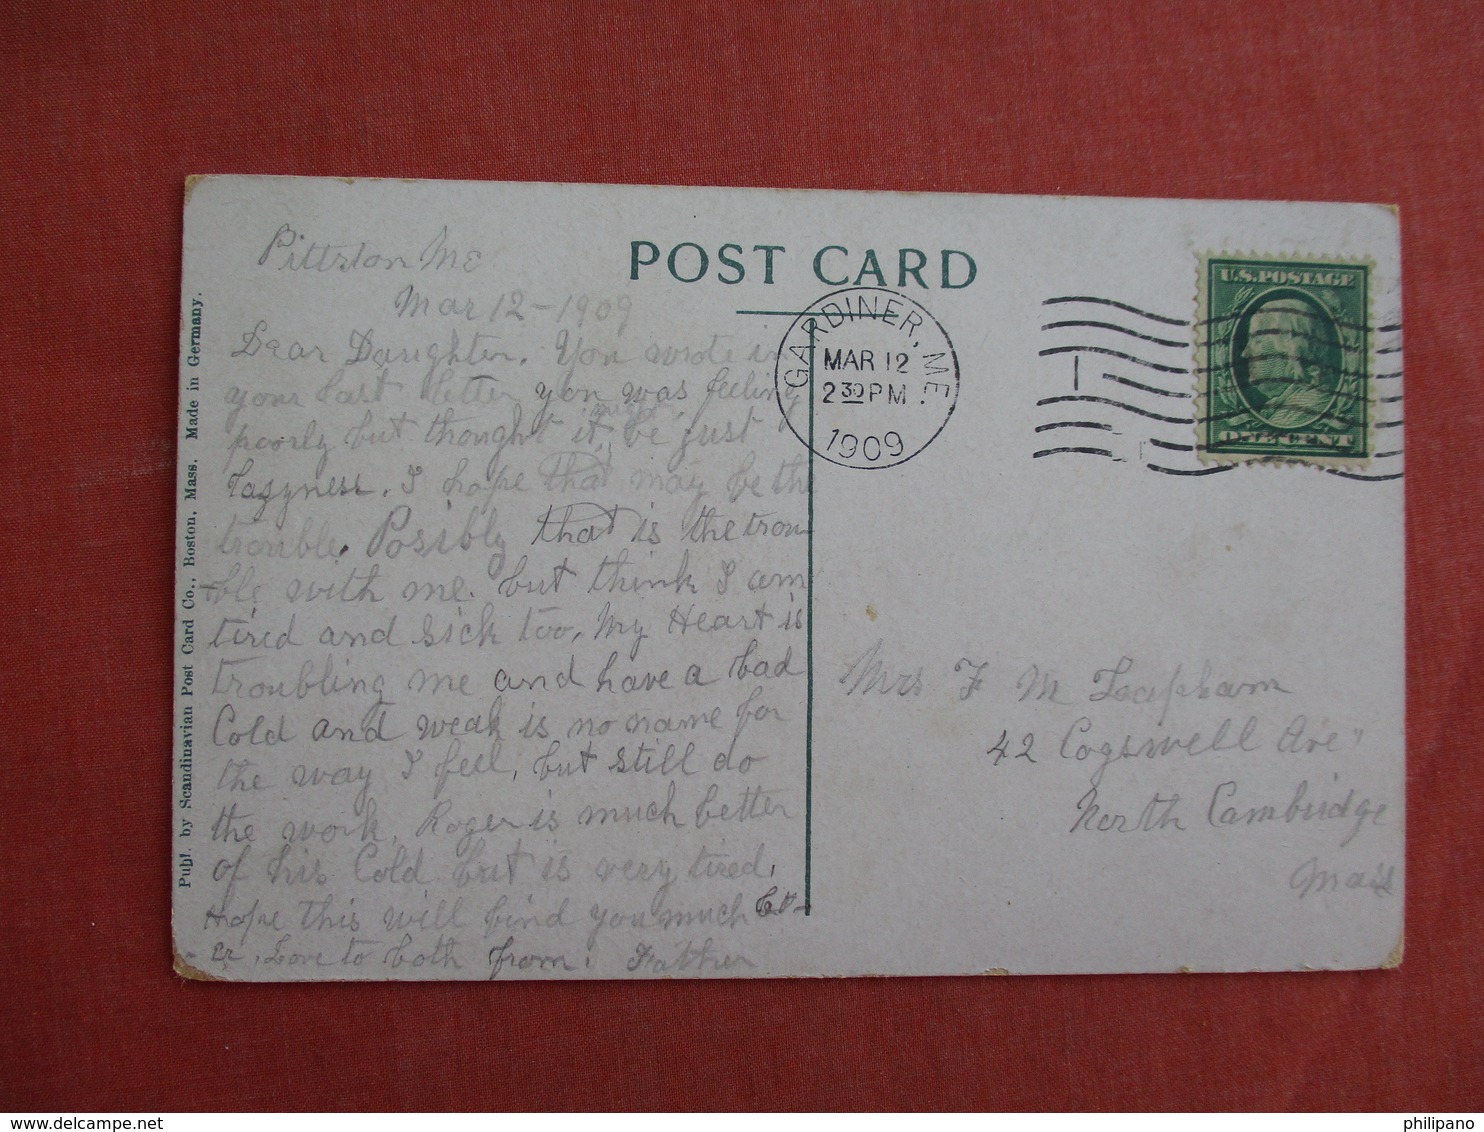 POST CARD
Pittston Me
Mar 12 - 1909
Dear Daughter. You wrote in
your last letter you was feeling
poorly but thought it might be just
lazyness. I hope that may be the
trouble. Posibly that is the trou-
ble with me. but think I am
tired and sick too. My Heart is
troubling me and have a bad
Cold and weak is no name for
the way I feel, but still do
the work. Roger is much better
of his Cold but is very tired.
Hope this will find you much bet-
er. Love to both from. Father
Publ. by Scandinavian Post Card Co., Boston, Mass. Made in Germany.
GARDINER, ME.
MAR 12
2 30 PM
1909
1
U.S. POSTAGE
ONE CENT
Mrs F M Lapham
42 Cogswell Ave"
North Cambridge
Mass
delcampe.net
philipano